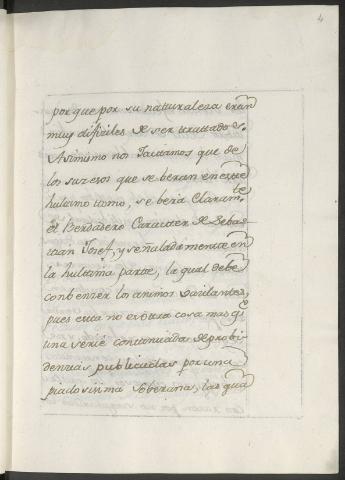 4
porque por su naturaleza eran
muy difiziles de ser trattados.
Asimismo nos Jactamos que de
los suzesos que se beran en este
hultimo tomo, se bera Claramte
el Berdadero Caracter de Sebas-
tian Josef, y señaladamente en
la hultima parte, la qual debe
conbenzer los animos vacilantes,
pues esta no es otra cosa mas qe
una serie continuada de probi-
denzias publicadas por una
piadosisima Soberana, las qua